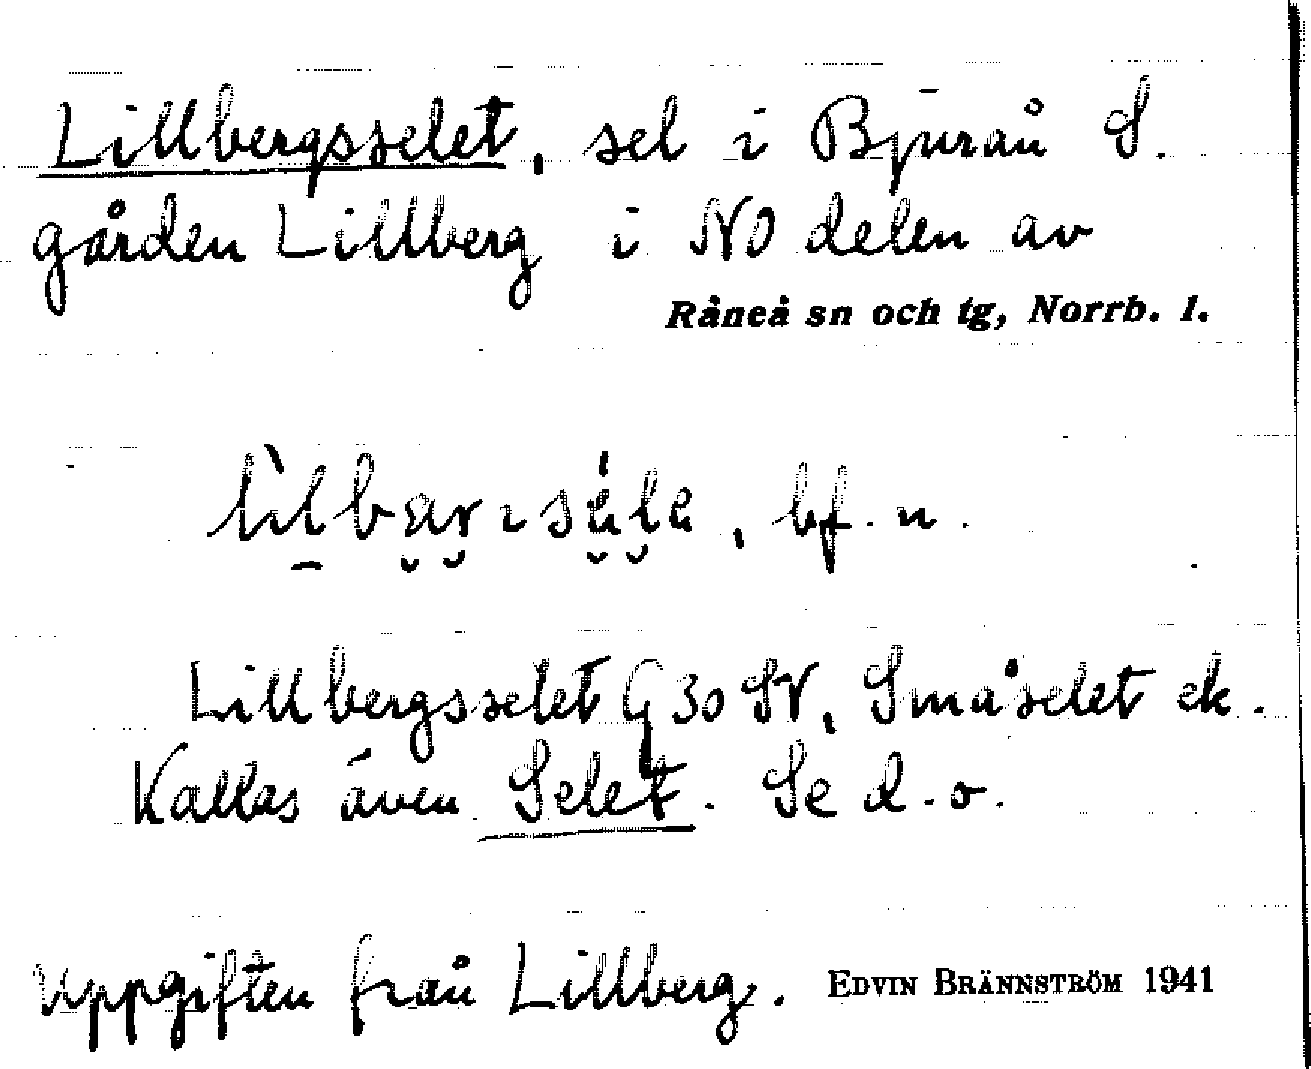 Lillbergsselet, sel i Bjurån S.
gården Lillberg i NO delen av
Råneå sn och tg, Norrb. l.
bf. n.
Lillbergsselet G 30 SV, Småselet ek.
Kallas även Selet. Se d. o.
Uppgiften från Lillberg. EDVIN BRÄNNSTRÖM 1941